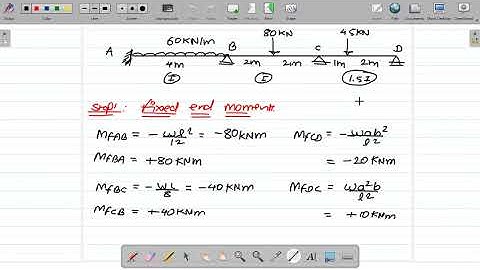 60KN/m 80KN 45KN
A B C D
4m 2m 2m 1m 2m
I I 1.5I
Step1: Fixed end moments
MFAB = -wl²/12 = -80KNm MFCD = -wab²/l²
MFBA = +80KNm = -20KNm
MFBC = -WL/8 = -40KNm MFDC = wa²b/l²
MFCB = +40KNm = +10KNm